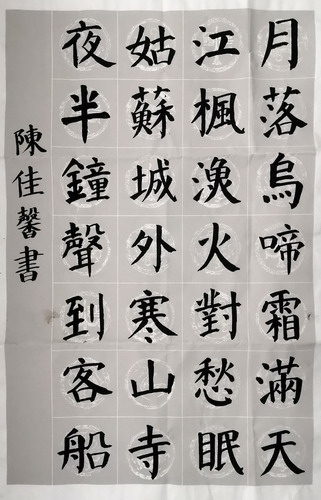 月落烏啼霜滿天
江楓漁火對愁眠
姑蘇城外寒山寺
夜半鐘聲到客船
陳佳馨書